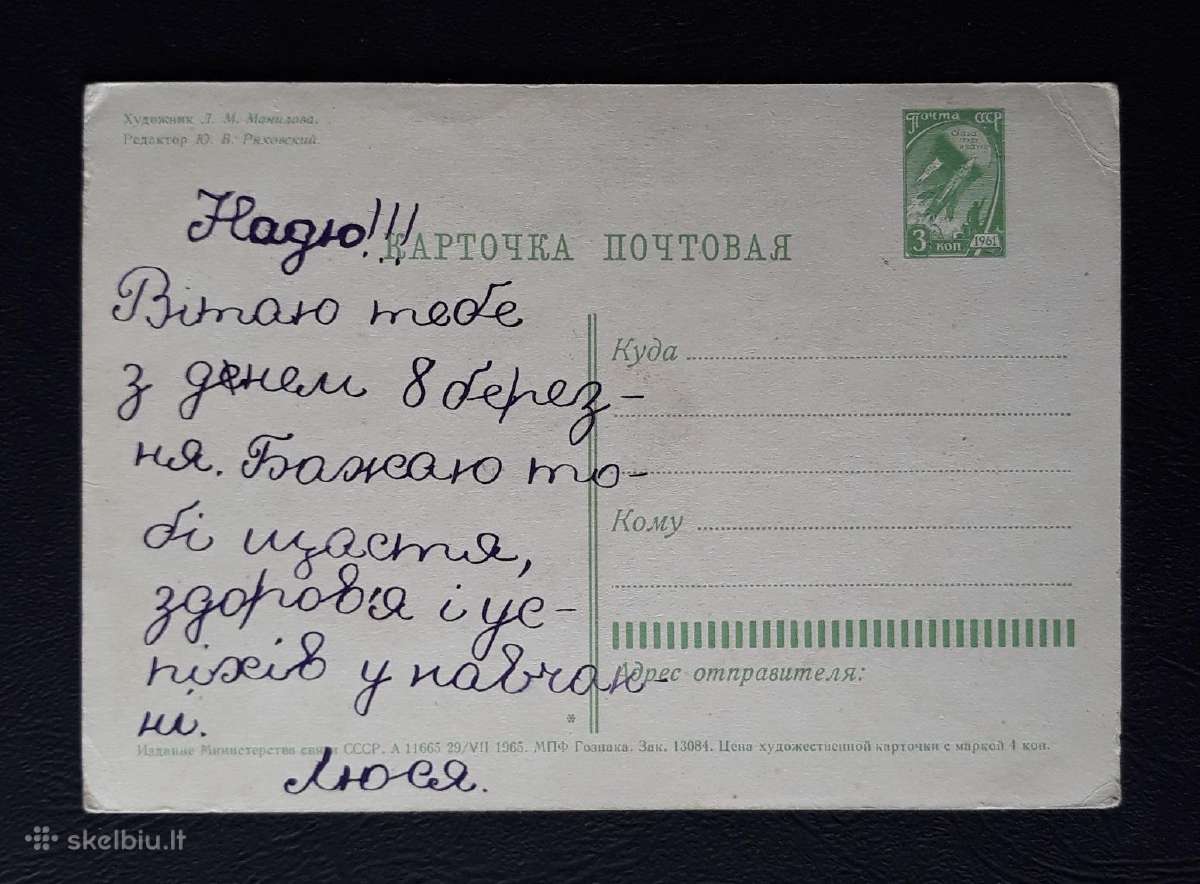 Художник Л. М. Манилова.
Редактор Ю. В. Ряховский.
Почта СССР
3 коп 1961
Надю!!!
КАРТОЧКА ПОЧТОВАЯ
Вітаю тебе
з днем 8 берез-
ня. Бажаю то-
бі щастя,
здоров'я і ус-
піхів у навчан-
ні.
Люся.
Куда
Кому
Адрес отправителя:
*
Издание Министерства связи СССР. А 11665 29/VII 1965. МПФ Гознака. Зак. 13084. Цена художественной карточки с маркой 4 коп.
skelbiu.lt